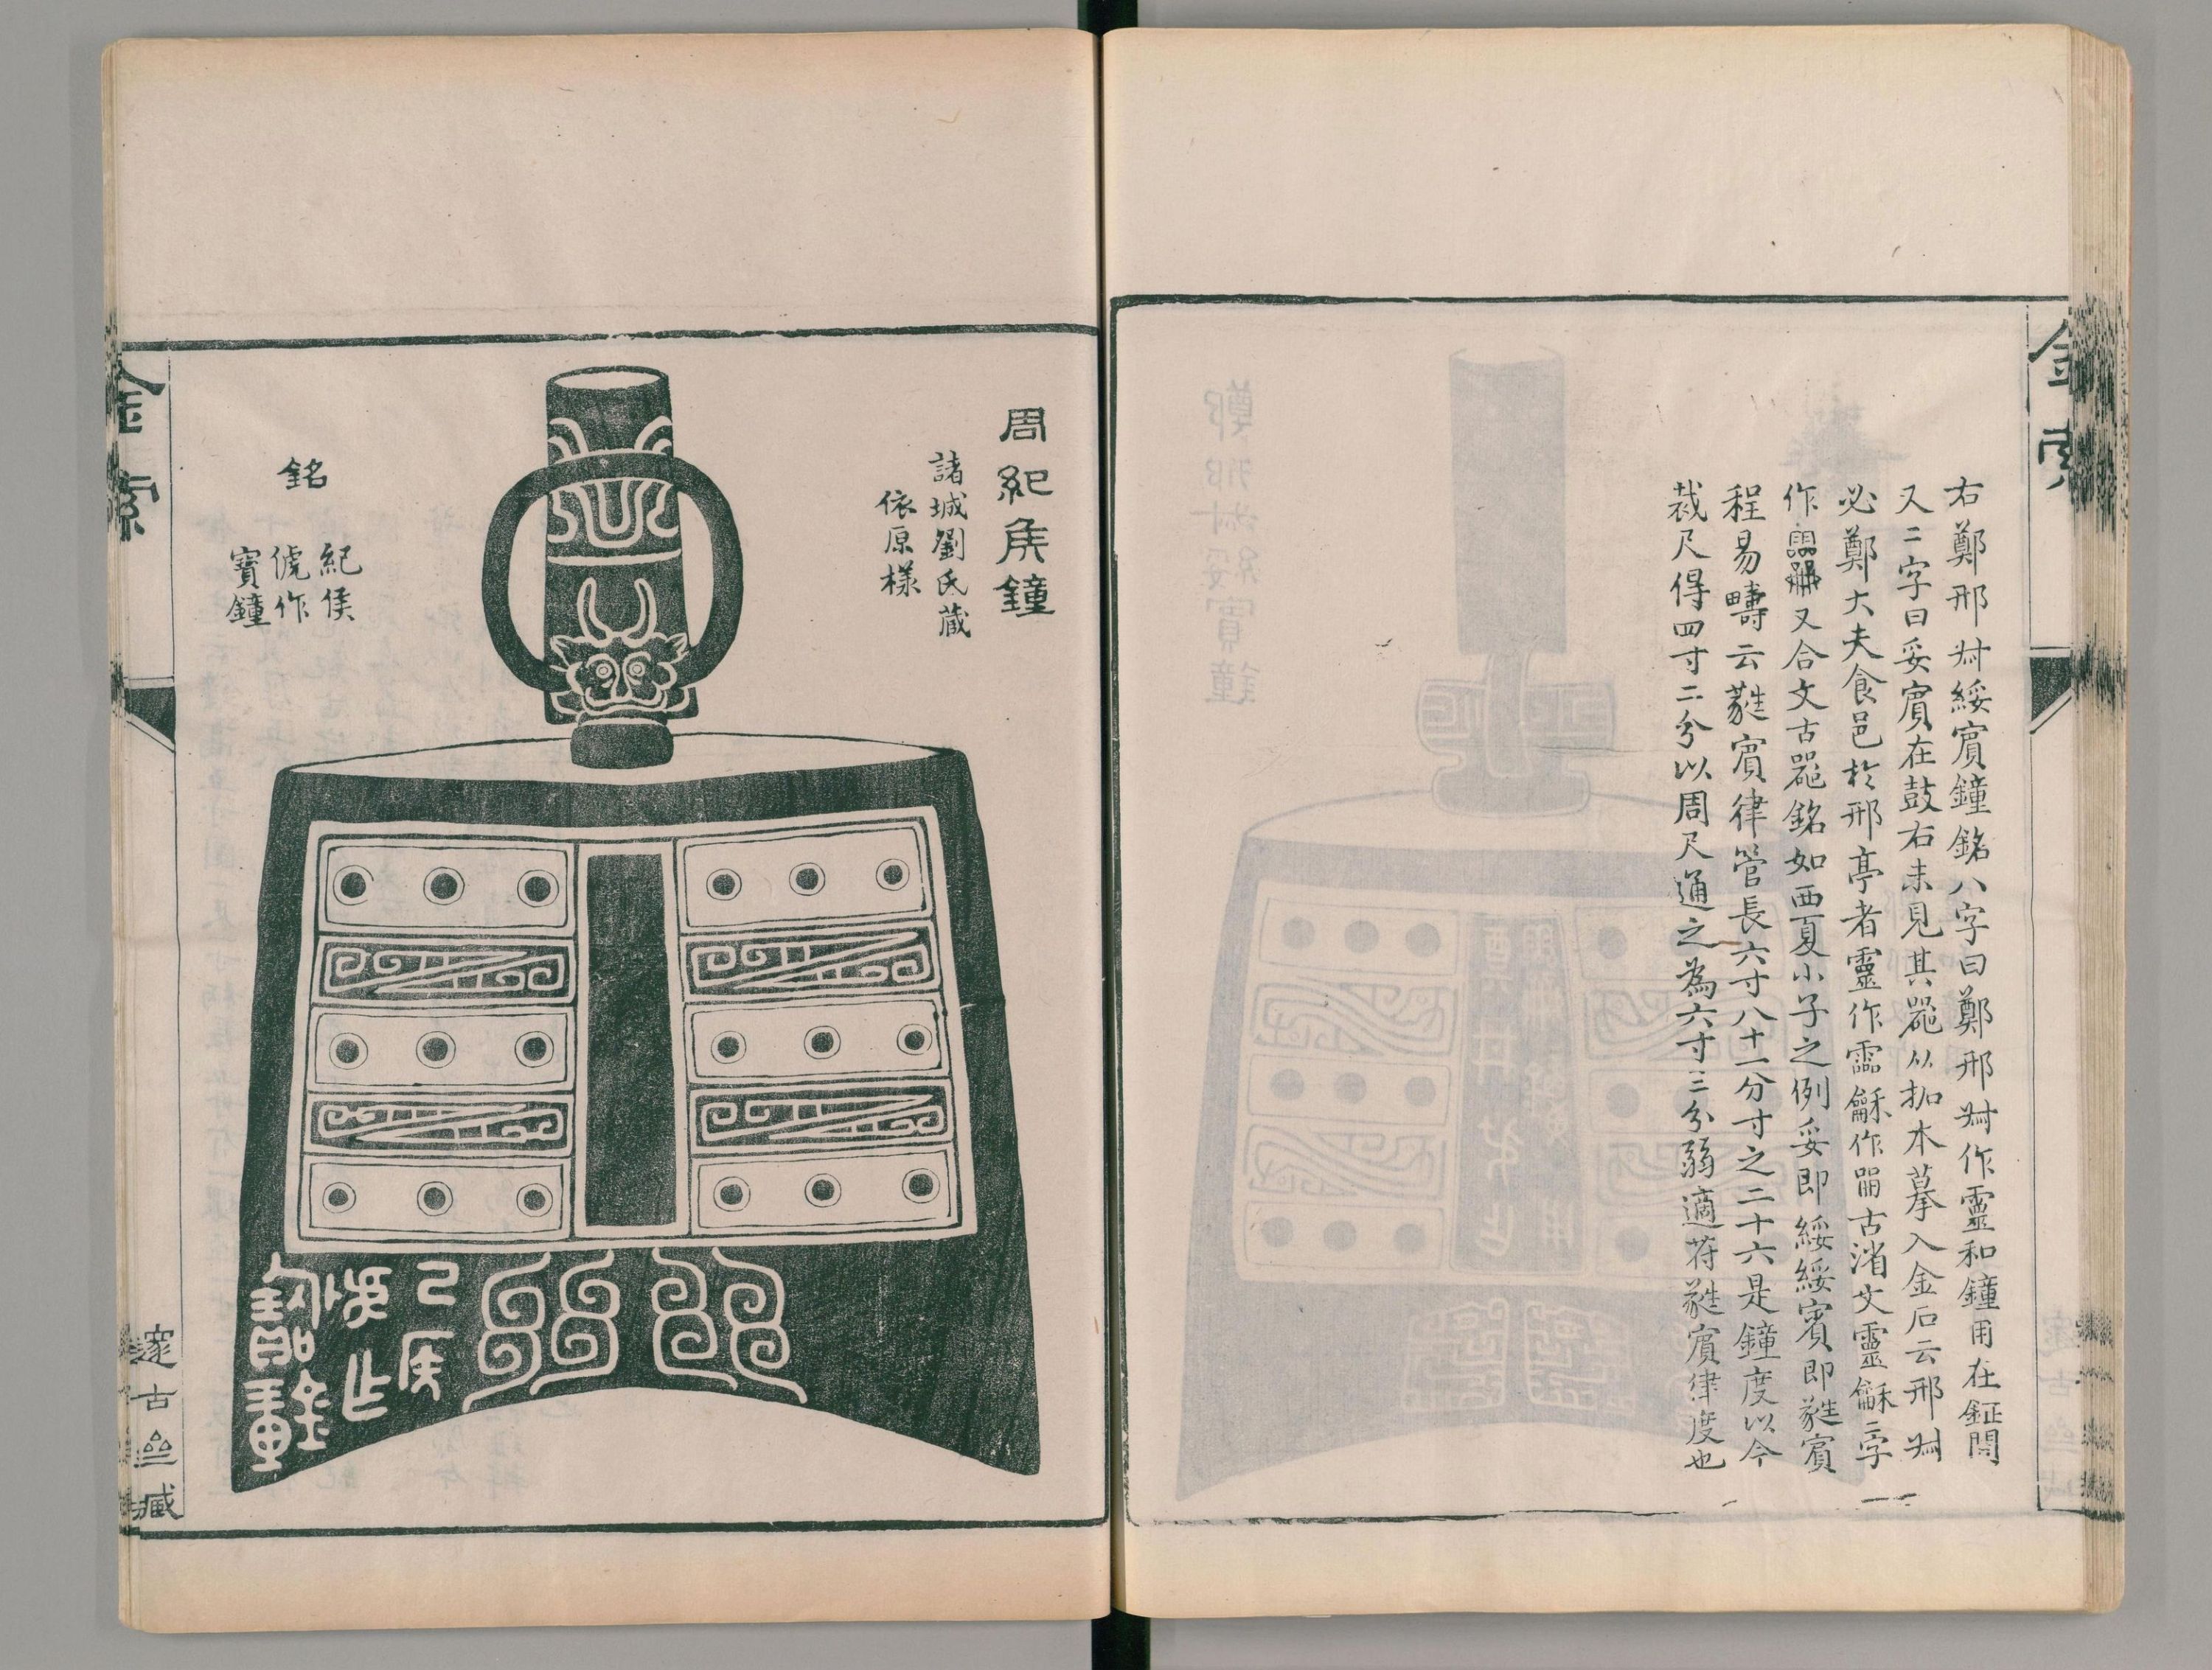 金索
右鄭邢叔綏賔鐘銘八字曰鄭邢叔作靈和鐘用在鉦閒
又二字曰妥賔在鼓右未見其器從拓本摹入金石云邢叔
必鄭大夫食邑於邢亭者靈作霝龢作𠱠古渻文靈龢二字
作又合文古器銘如西夏小子之例妥即綏綏賔即蕤賔
程易疇云蕤賔律管長六寸八十一分寸之二十六是鐘度以今
裁尺得四寸二分以周尺通之為六寸三分弱適符蕤賔律度也
周紀矦鐘
諸城劉氏藏
依原樣
銘
紀侯
虓作
寶鐘
己矦
作
寶鐘
金索
邃古亝藏